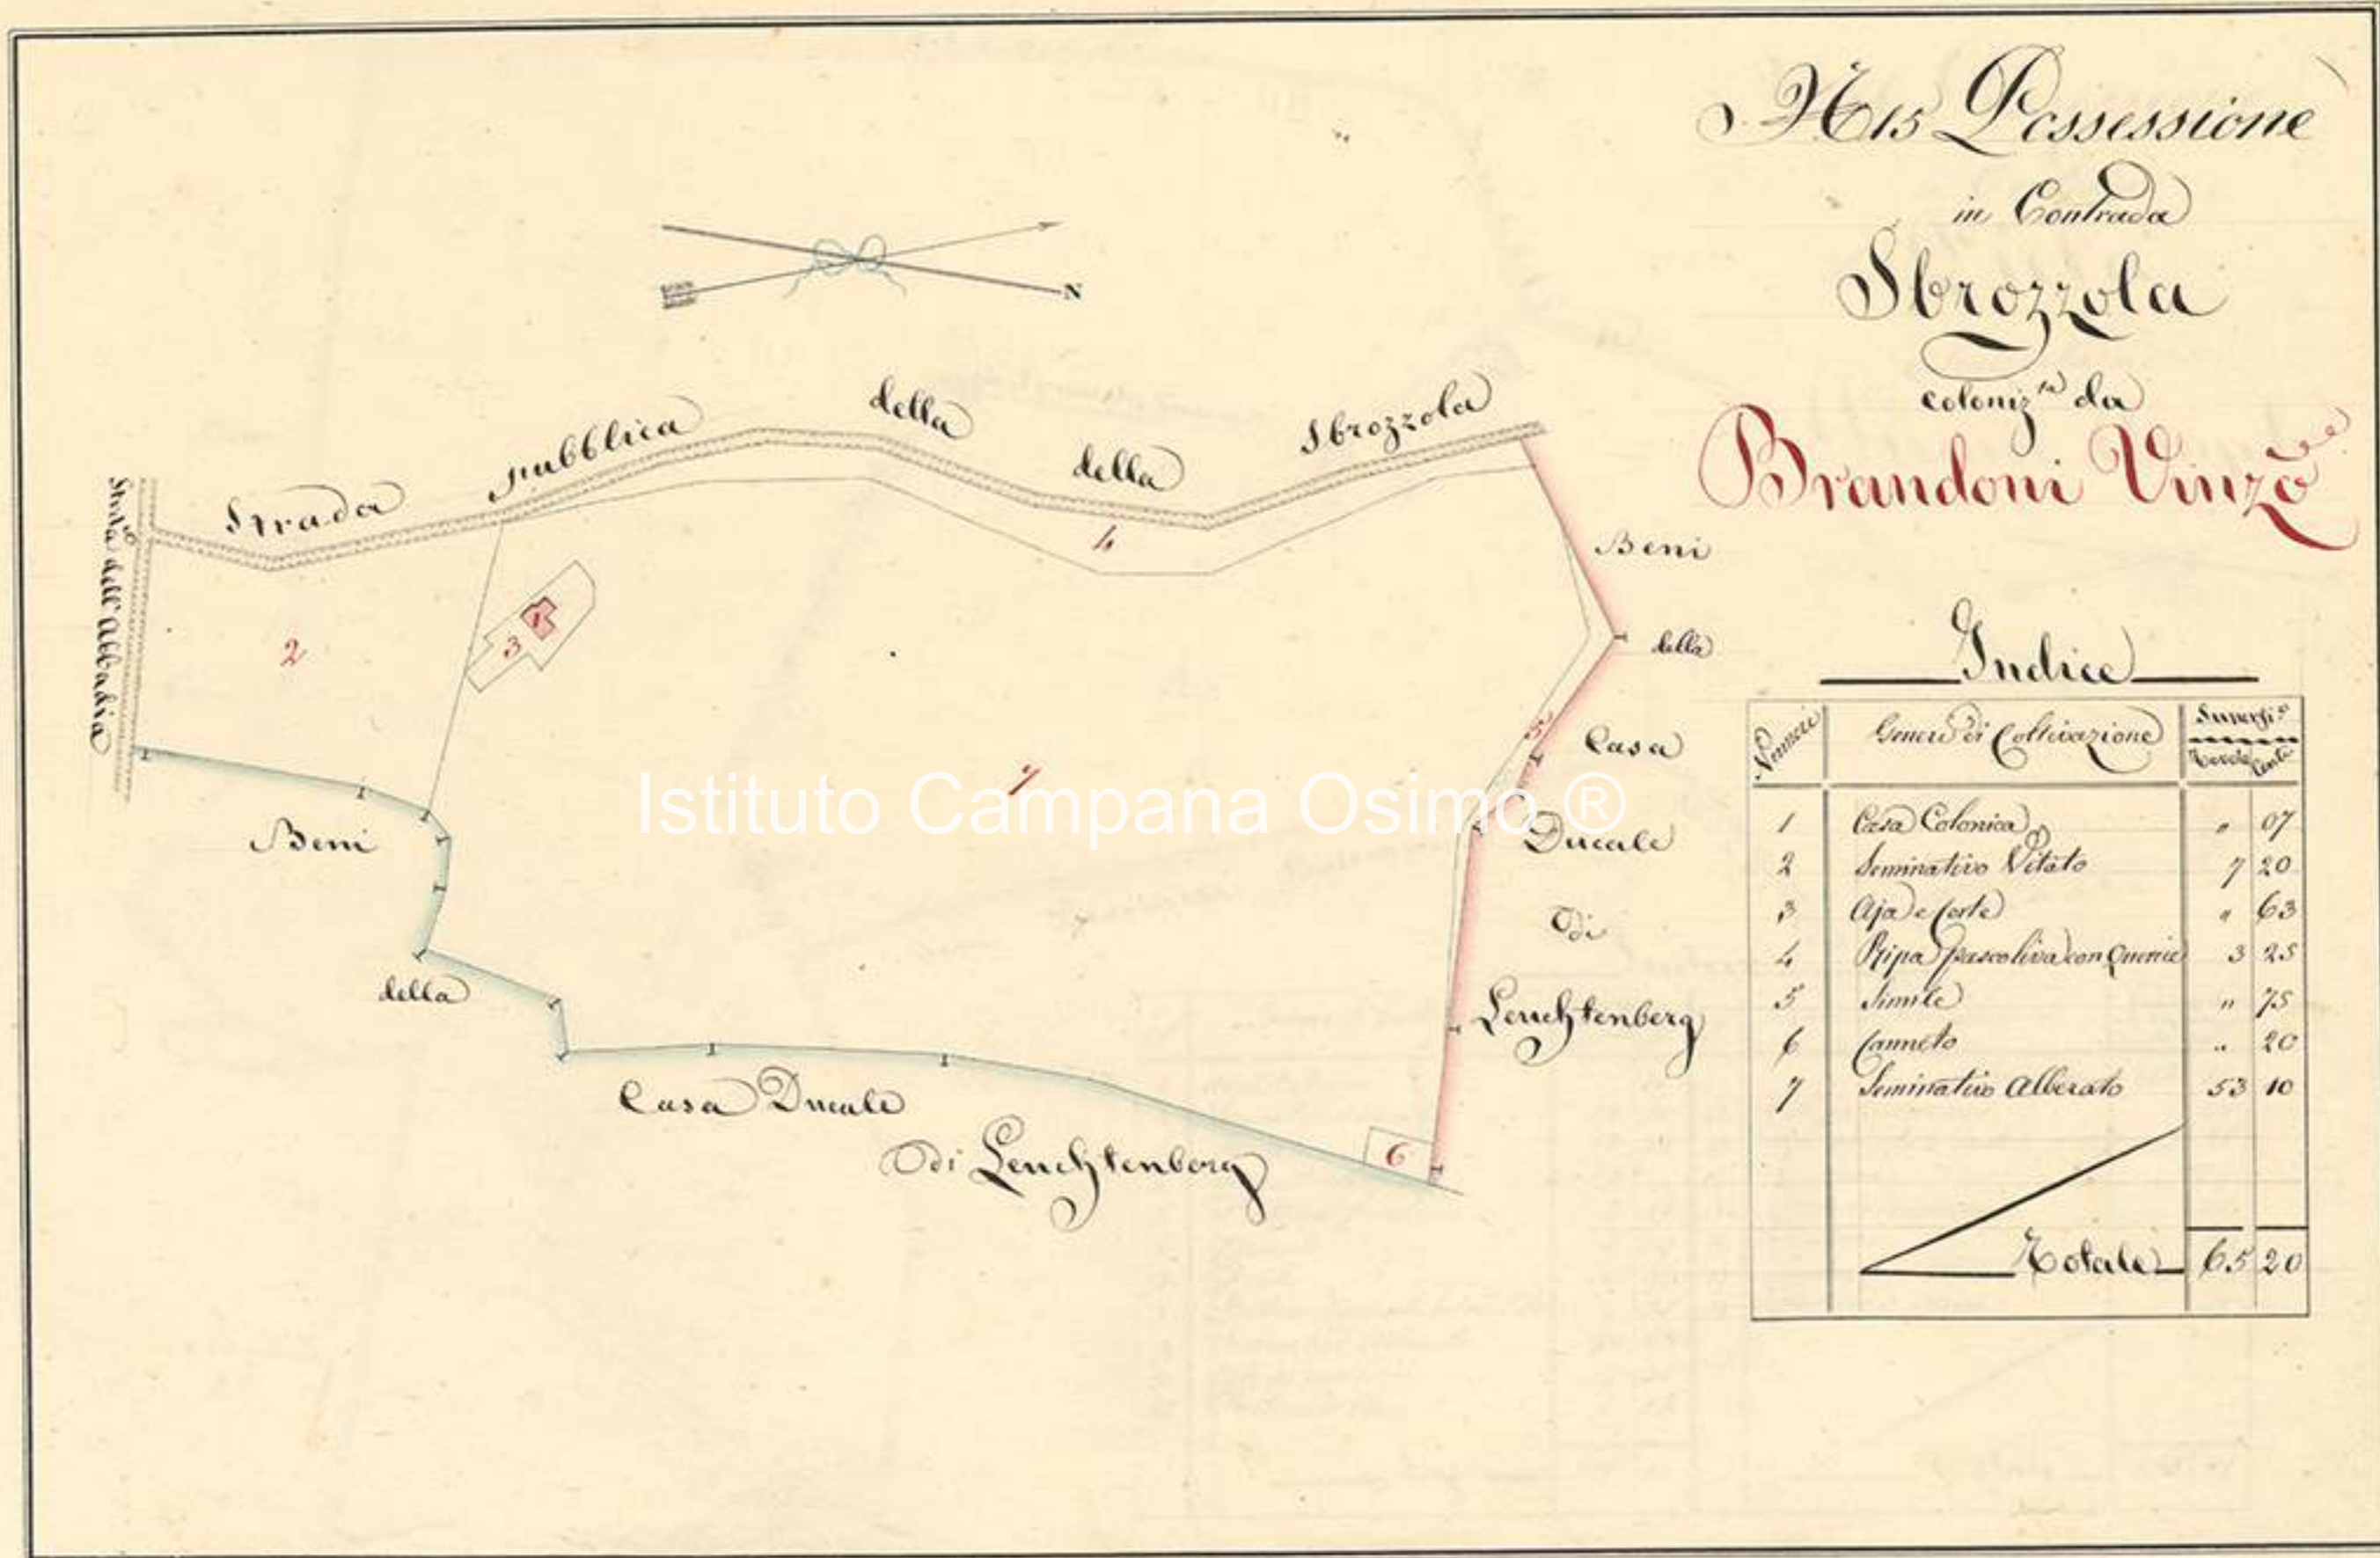 N 15 Possessione
in Contrada
Sbrozzola
coloniz.ta da
Brandoni Vinzo
N
Strada pubblica della della Sbrozzola
Strada dell'abbadia
2
3
1
4
5
7
6
Beni
della
Casa
Ducale
Di
Leuchtenberg
Beni
della
Casa Ducale
Di Leuchtenberg
Istituto Campana Osimo ®
Indice
Numeri Genere di Coltivazione Superfi.e
Tavole Cente
1 Casa Colonica " 07
2 Seminativo Vitato 7 20
3 Aja e Corte " 63
4 Ripa pascoliva con Quercie 3 25
5 Simile " 75
6 Canneto " 20
7 Seminativo Alberato 53 10
Totale 65 20